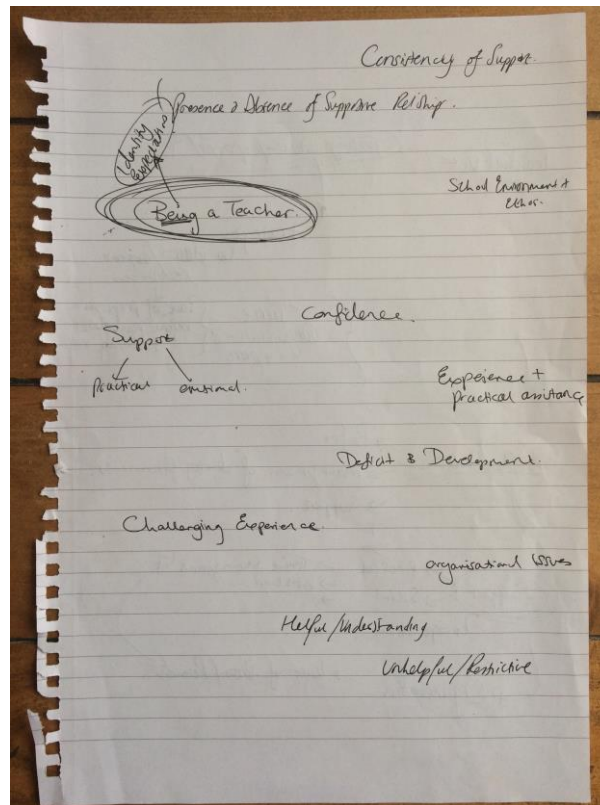 Consistency of Support.
Presence & Absence of Supportive Rel'ship.
Identity
expectations
Being a Teacher.
School Environment &
Ethos.
Confidence.
Support
Practical emotional.
Experience +
practical assistance
Deficit & Development.
Challenging Experience.
organisational issues
Helpful/Understanding
Unhelpful/Restrictive